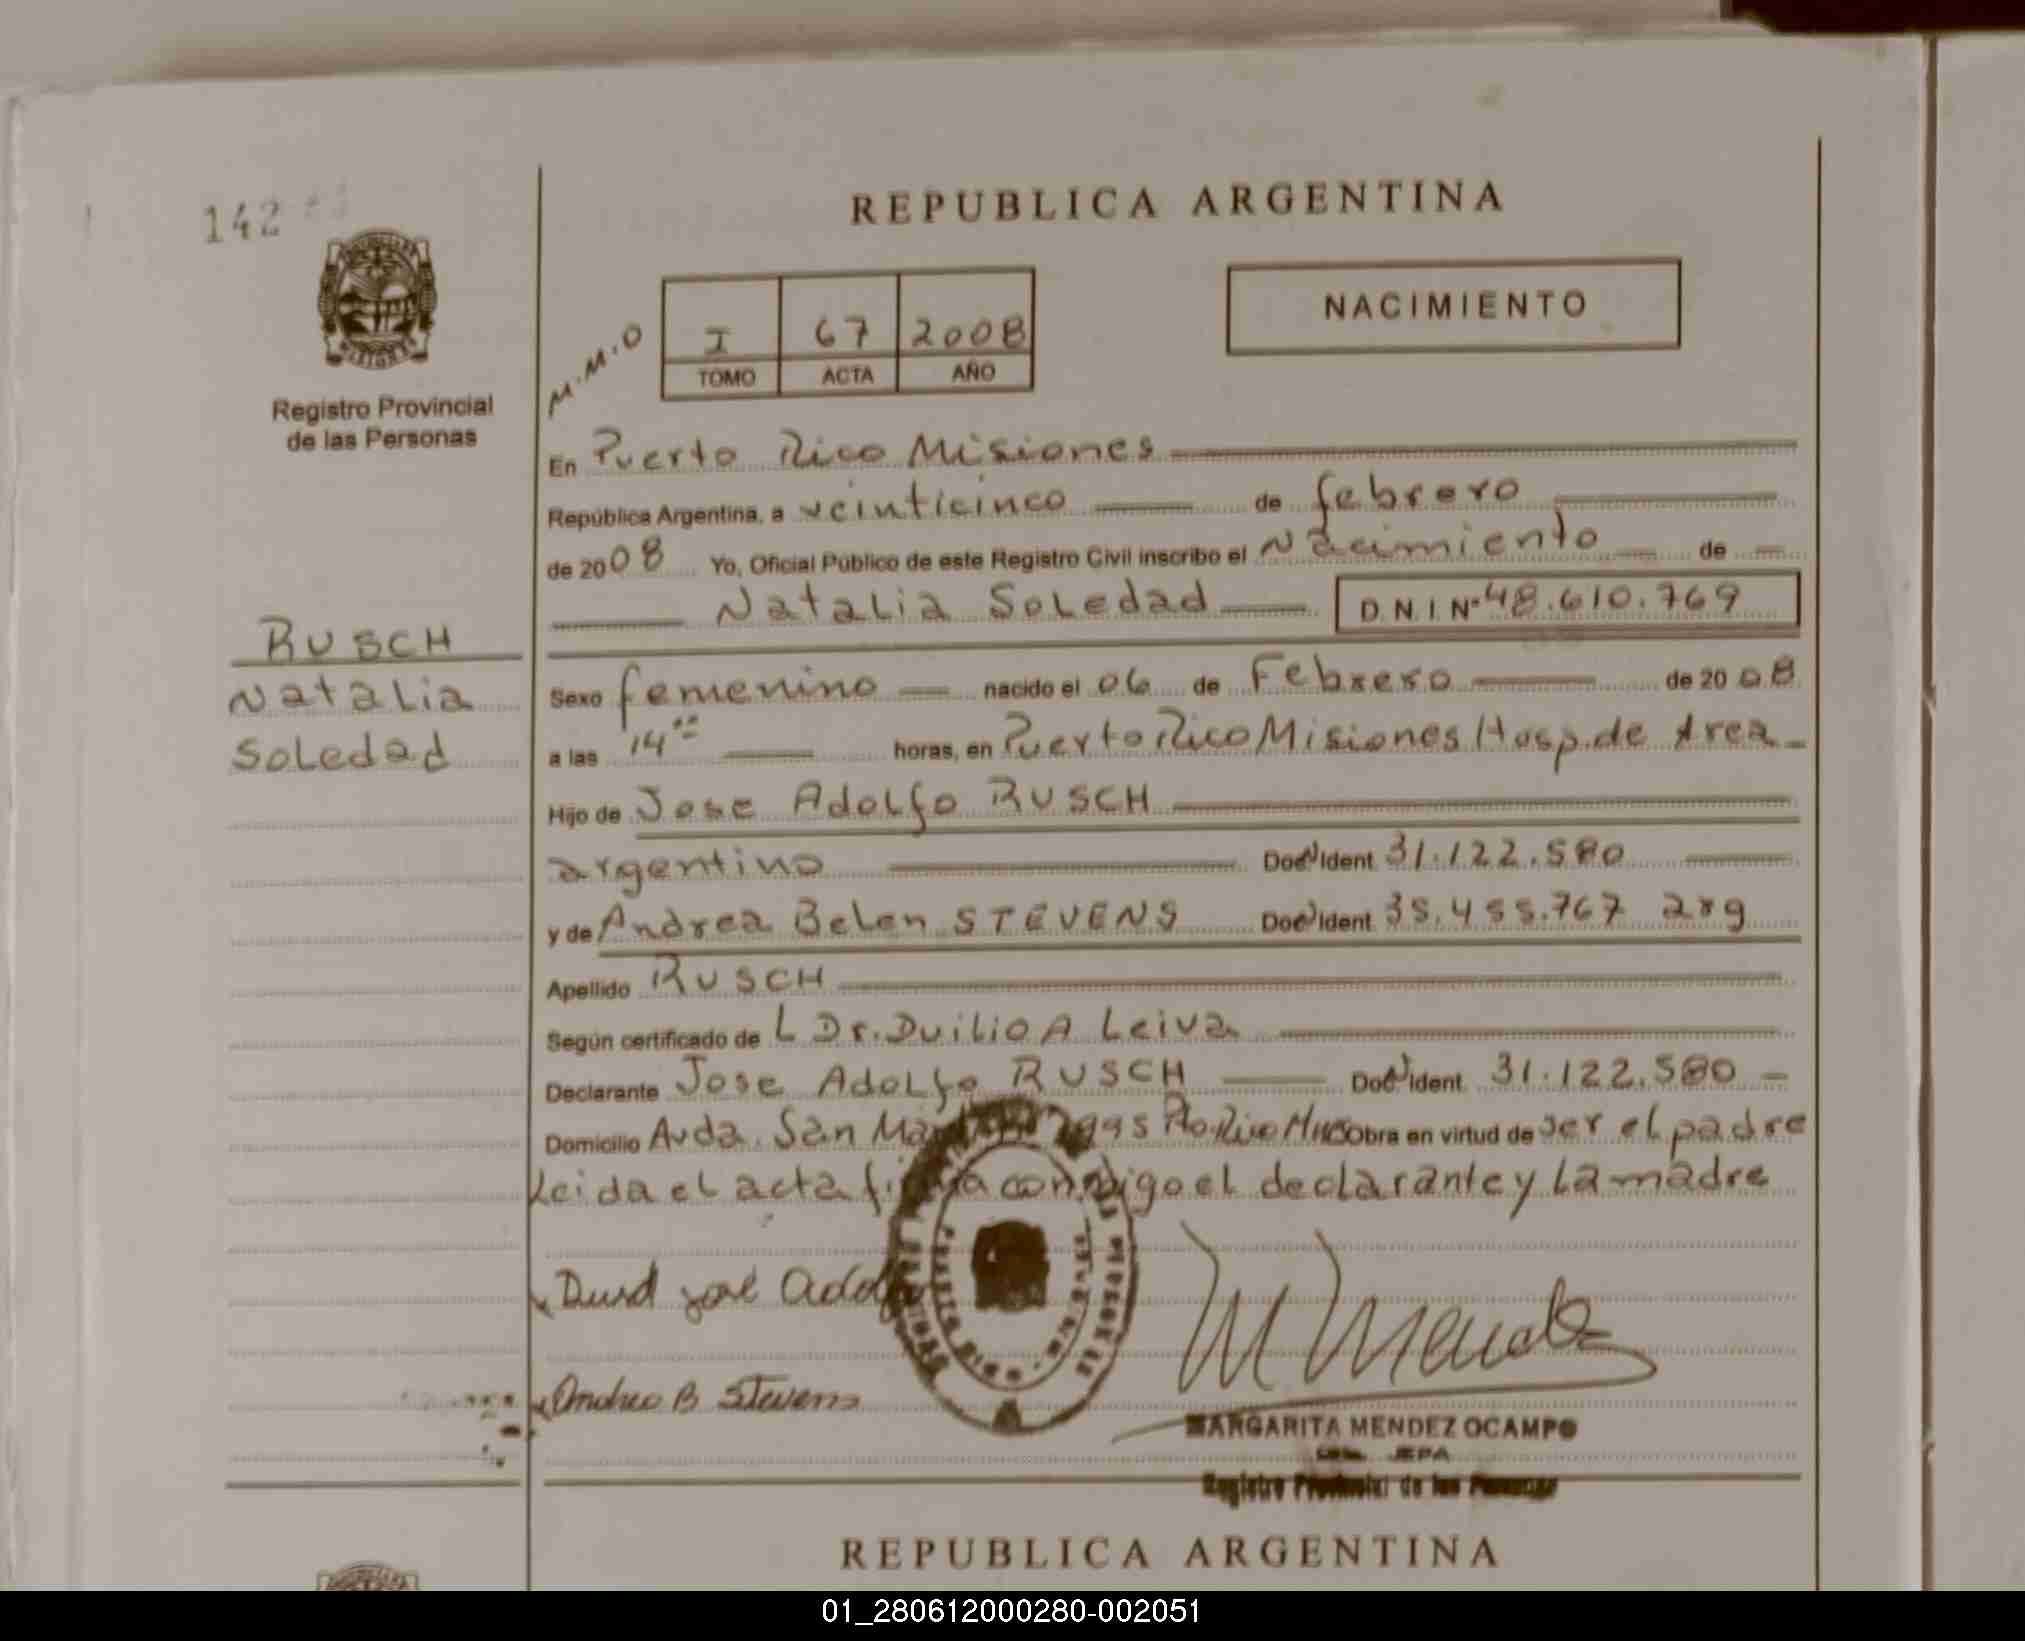 142
REPUBLICA ARGENTINA
NACIMIENTO
M.M.O
I 67 2008
TOMO ACTA AÑO
MISIONES
Registro Provincial
de las Personas
En Puerto Rico Misiones
República Argentina, a veinticinco de febrero
de 2008 Yo, Oficial Público de este Registro Civil inscribo el Nacimiento de
Natalia Soledad D.N.I. Nº 48.610.769
RUSCH
Natalia
Soledad
Sexo femenino nacido el 06 de Febrero de 2008
a las 14 horas, en Puerto Rico Misiones Hosp. de Area
Hijo de Jose Adolfo RUSCH
argentino Doc. Ident. 31.122.580
y de Andrea Belen STEVENS Doc. Ident. 35.455.767 arg
Apellido RUSCH
Según certificado de L Dr. Duilio A Leiva
Declarante Jose Adolfo RUSCH Doc. Ident. 31.122.580
Domicilio Avda. San Pto. Rico Obra en virtud de ser el padre
Leida el acta firma conmigo el declarante y la madre
jose Adolfo
Andrea B Stevens
MARGARITA MENDEZ OCAMPO
Registro Provincial de las Personas
REPUBLICA ARGENTINA
01_280612000280-002051